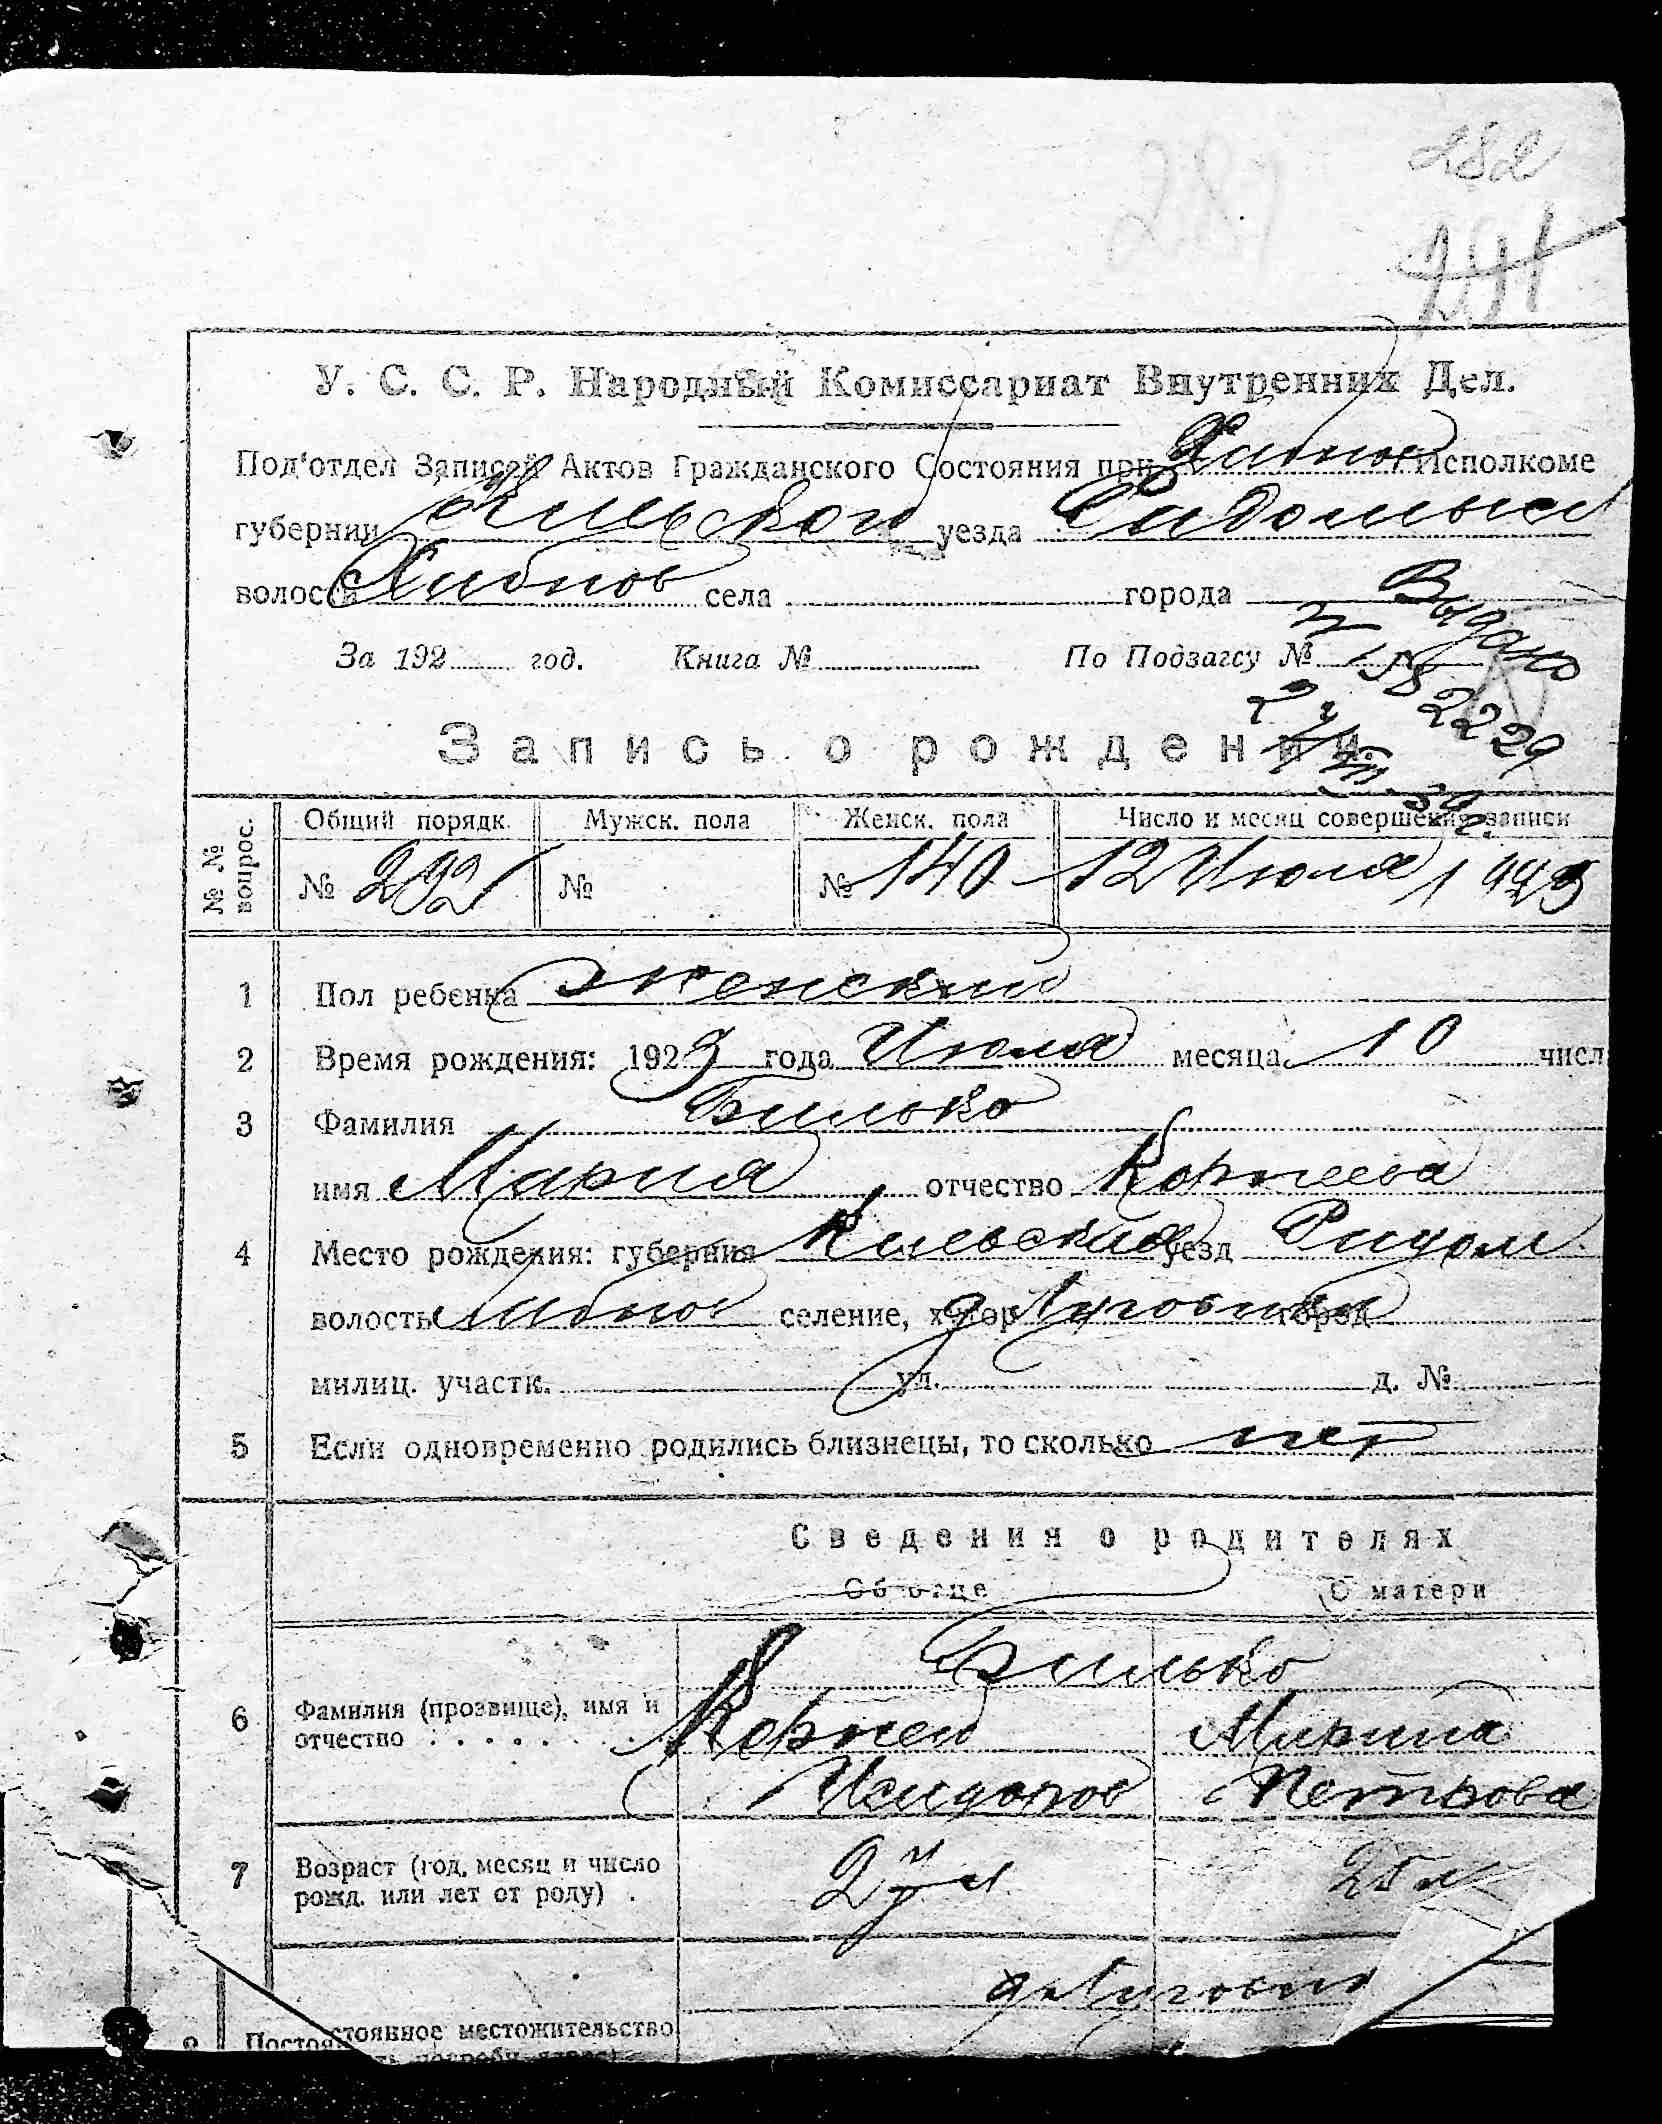 282
287
291
У. С. С. Р. Народный Комиссариат Внутренних Дел.
Под'отдел Записей Актов Гражданского Состояния при Хабное Исполкоме
губернии Киевской уезда Радомысл
волости Хабнов села города
Выдано
За 192 год. Книга № По Подзагсу №
Запись о рождении.
№ № вопрос. Общий порядк. Мужск. пола Женск. пола Число и месяц совершения записи
№ 292 № № 140 12 Июля 1923
1 Пол ребенка Женский
2 Время рождения: 1923 года Июля месяца 10 числ
3 Фамилия Билько
имя Мария отчество Корнеева
4 Место рождения: губерния Киевская уезд Радом
волость Хабное селение, хутор д. Луговики город
милиц. участк. ул. д. №
5 Если одновременно родились близнецы, то сколько нет
Сведения о родителях
Об отце О матери
Билько
6 Фамилия (прозвище), имя и Корней Марина
отчество . . . . . . . Исидоров Петрова
7 Возраст (год, месяц и число 25 л
рожд. или лет от роду) .
д. Луговики
8 Постоянное местожительство